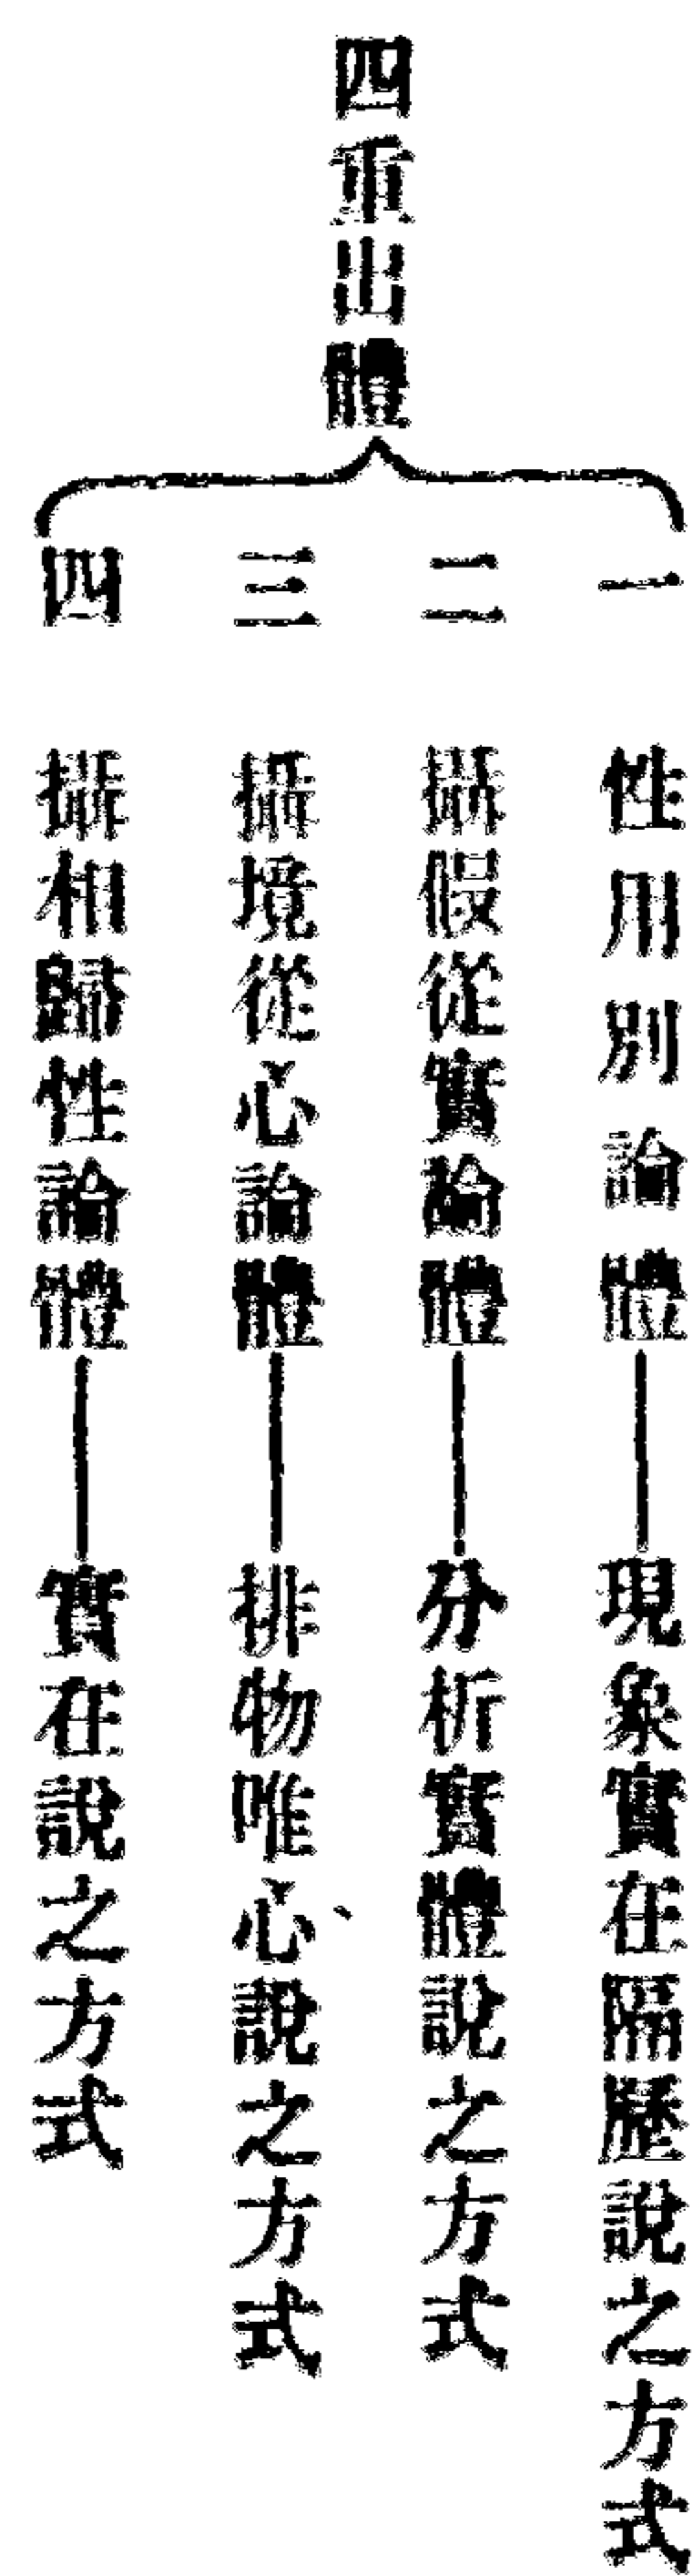 四重出體
一　性用別論體——現象實在隔歷說之方式
二　攝假從實論體——分析實體說之方式
三　攝境從心論體——排物唯心說之方式
四　攝相歸性論體——實在說之方式